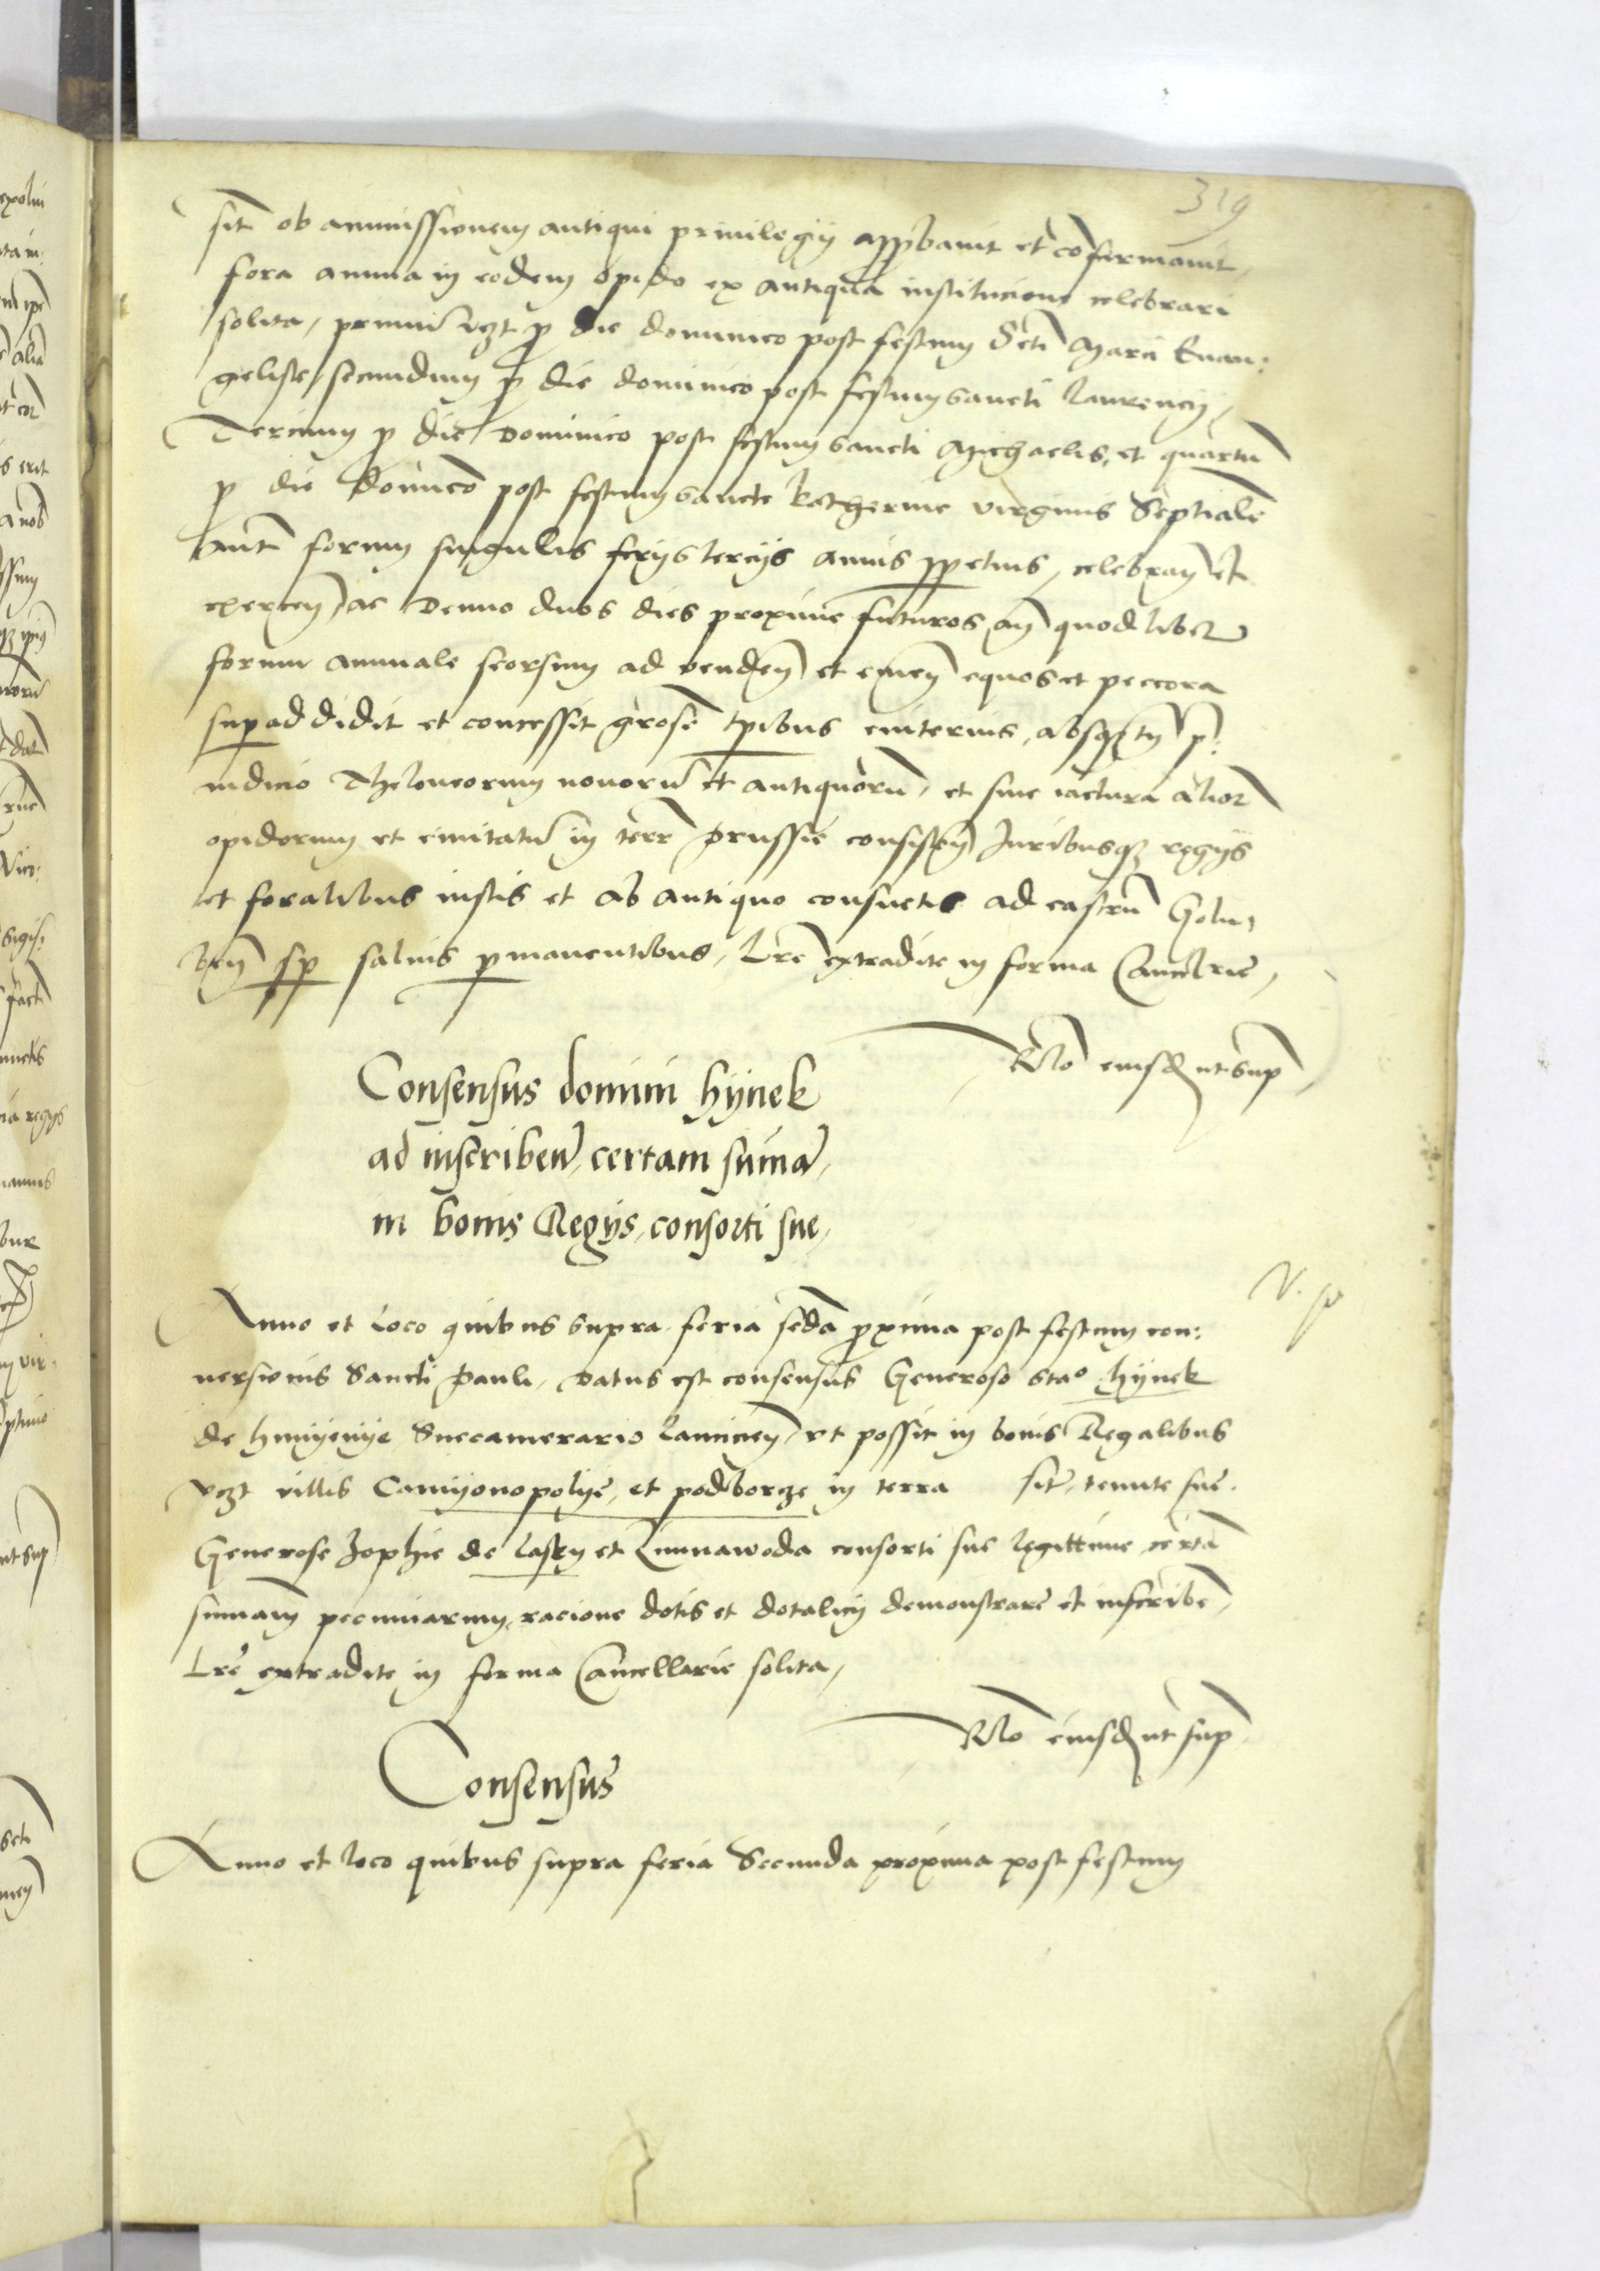 319
sit ob ammissionem antiqui privilegij approbavit et confirmavit,
fora annua in eodem opido ex antiqua institucione celebrari
solita, primum vczt pro die dominico post festum Scti Marci Evan:
geliste, secundum pro die dominico post festum sancti Laurencij,
Tercium pro die Dominico post festum sancti Michaelis, et quartu
pro die dominico post festum sancte Katherine virginis Septiale
aut forum singulis ferijs tercijs annis perpetuis, celebran et
exercen, ac denuo duos dies proxime futuros an quodlibet
forum annuale seorsim ad venden et emen equos et peccora
superaddidit et concessit grose tpibus eviternis, absque tn pre:
iudicio Theloneorum novoru et antiquoru, et sine iactura alior
opidorum et civitatu in terr Prussie consisten Juribusque regijs
et foralibus iustis et ab antiquo consuetis ad castru Golu:
ben sp salvis permanentibus, Lre extradite in forma Cancelrie,
Rlo eiusd ut sup
Consensus domini Hynek
ad inscriben, certam suma,
in bonis Regijs, consorti sue,
V. p
Anno et loco quibus supra feria scda proxima post festum con:
versionis Sancti Pauli, Datus est consensus Generoso Stao Hynek
de Succamerario Lancicien, ut possit in bonis Regalibus
vczt villis et podborze in terra sit, tenute sue
Generose Zophie de Lasky et consorti sue legittime certa
summam pecuniarum, racione dotis et dotalicij demonstrare et inscribe,
Lre extradite in forma Cancellarie solita,
Rlo eiusd ut sup
Consensus
Anno et loco quibus supra feria Secunda proxima post festum